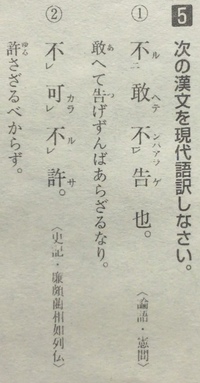 5 次の漢文を現代語訳しなさい。
① 不ルニ敢ヘテンバアラ不レ告ゲ也。〈論語・憲問〉
敢(あ)へて告(つ)げずんばあらざるなり。
② 不レ可カラ不ルレ許サ。〈史記・廉頗藺相如列伝〉
許(ゆる)さざるべからず。